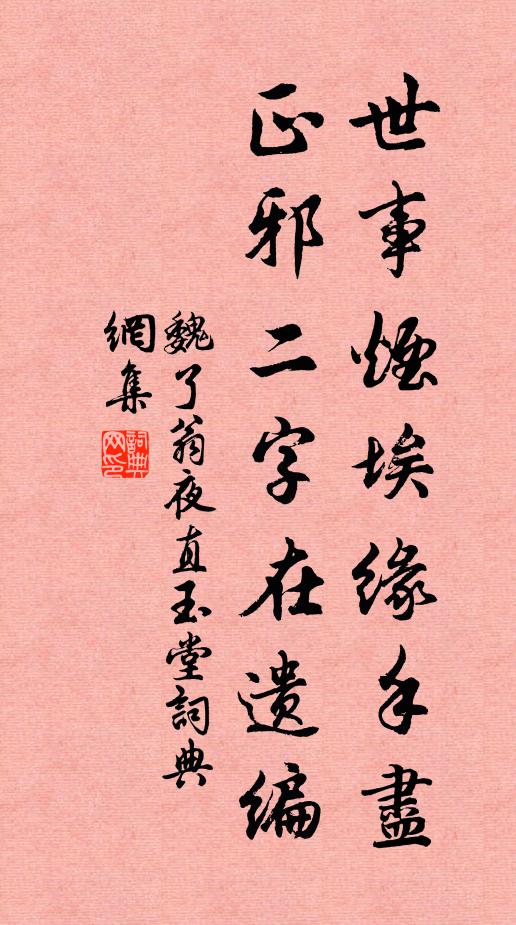 世事煙埃緣手盡
正邪二字在遺編
魏了翁夜直玉堂詞典
網集
詞典網印